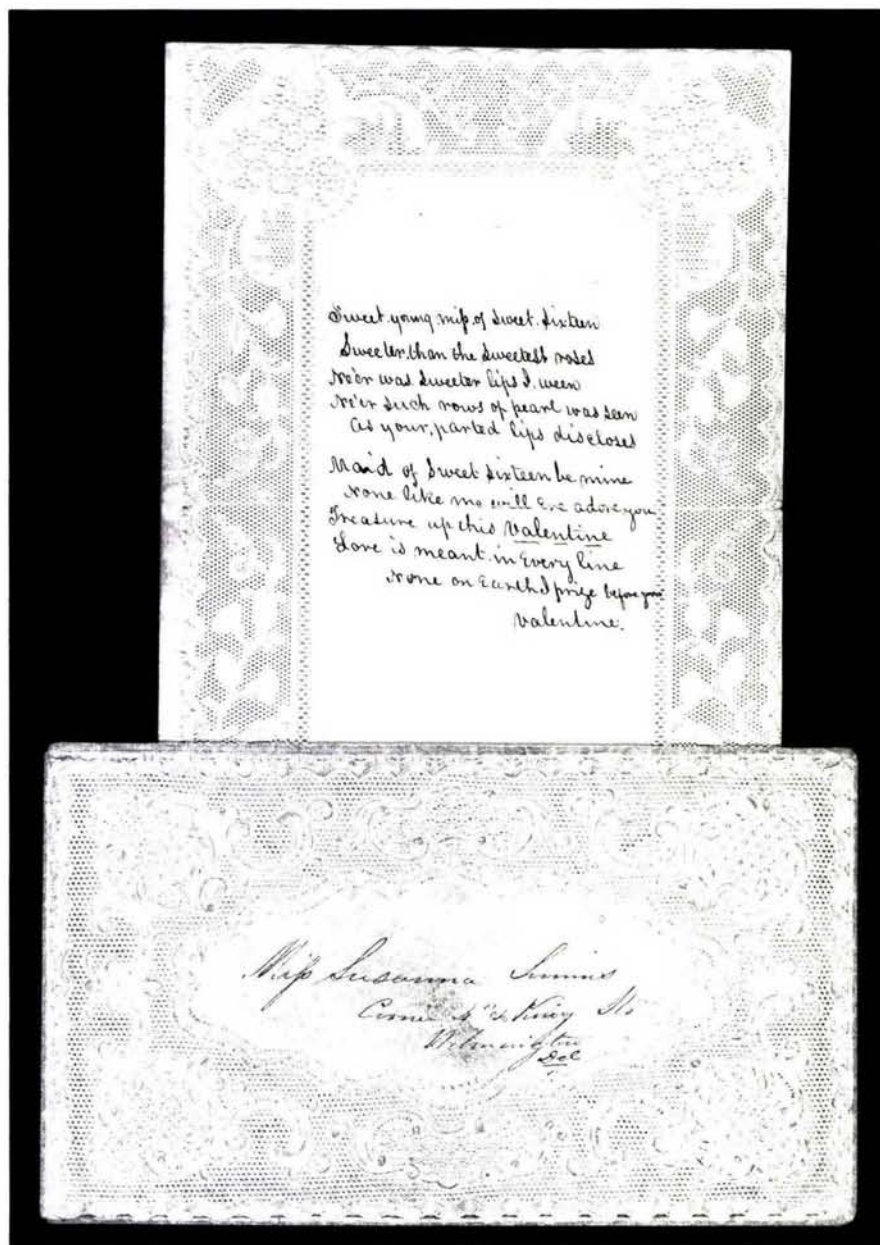 Sweet young miſs of Sweet Sixteen
Sweeter than the Sweetest roses
Ne'er was Sweeter lips I ween
Ne'er Such rows of pearl was seen
As your parted lips discloses
Maid of Sweet Sixteen be mine
None like me will Ere adore you
Treasure up this Valentine
Love is meant in Every line
None on Earth I prize before you
Valentine.
Miſs Susanna
Corner 4th & King Sts
Wilmington
Del